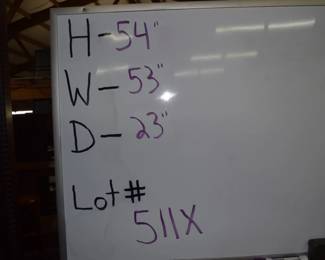 H-54"
W-53"
D-23"
Lot#
511X